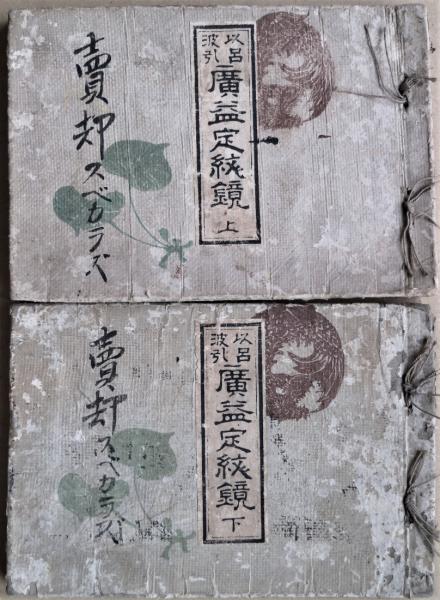 以呂
波引
廣益定紋鏡 上
賣却スベカラズ
以呂
波引
廣益定紋鏡 下
賣却スベカラズ